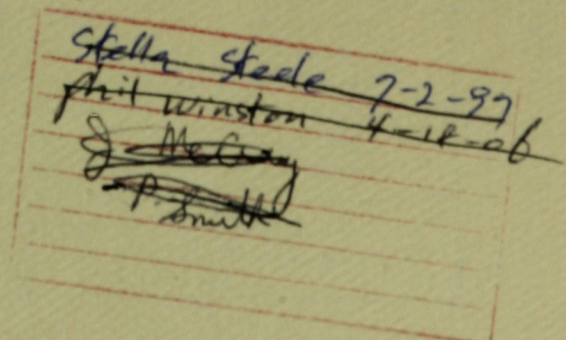 Stella Steele 7-2-97
Phil Winston 4-18-06
J McCrory
P. Smith